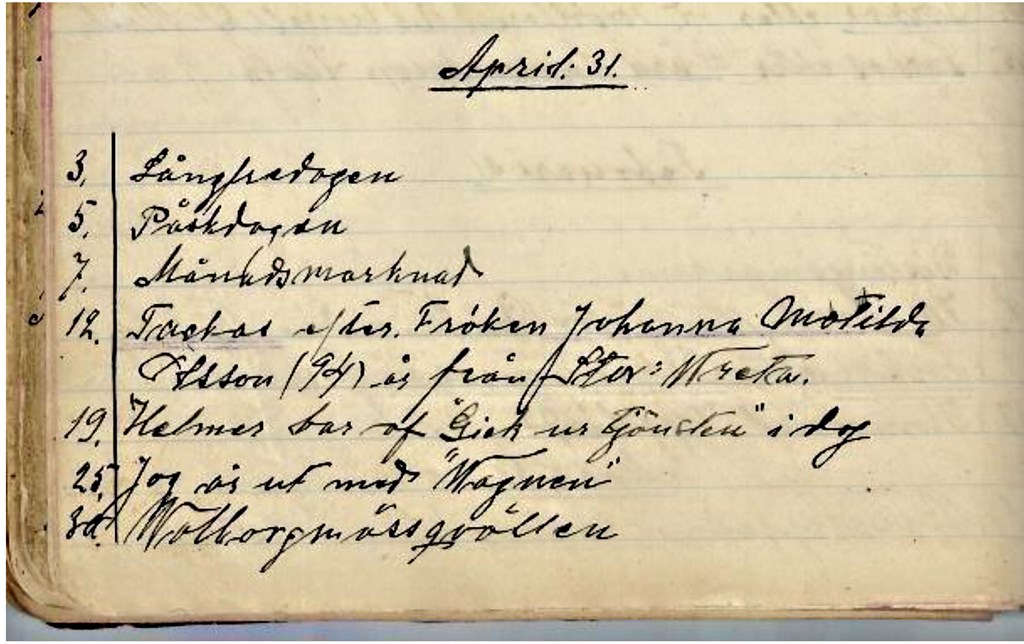 April: 31.
3, Långfredagen
5. Påskdagen
7. Månadsmarknad
12. Tackas efter. Fröken Johanna Matilda
Olsson (94) år från Stor: Wreta.
19. Helmer bar af "Gick ur tjänsten" i dag
25, Jag är ut med "Wagnen"
30. Walborgmässqvällen